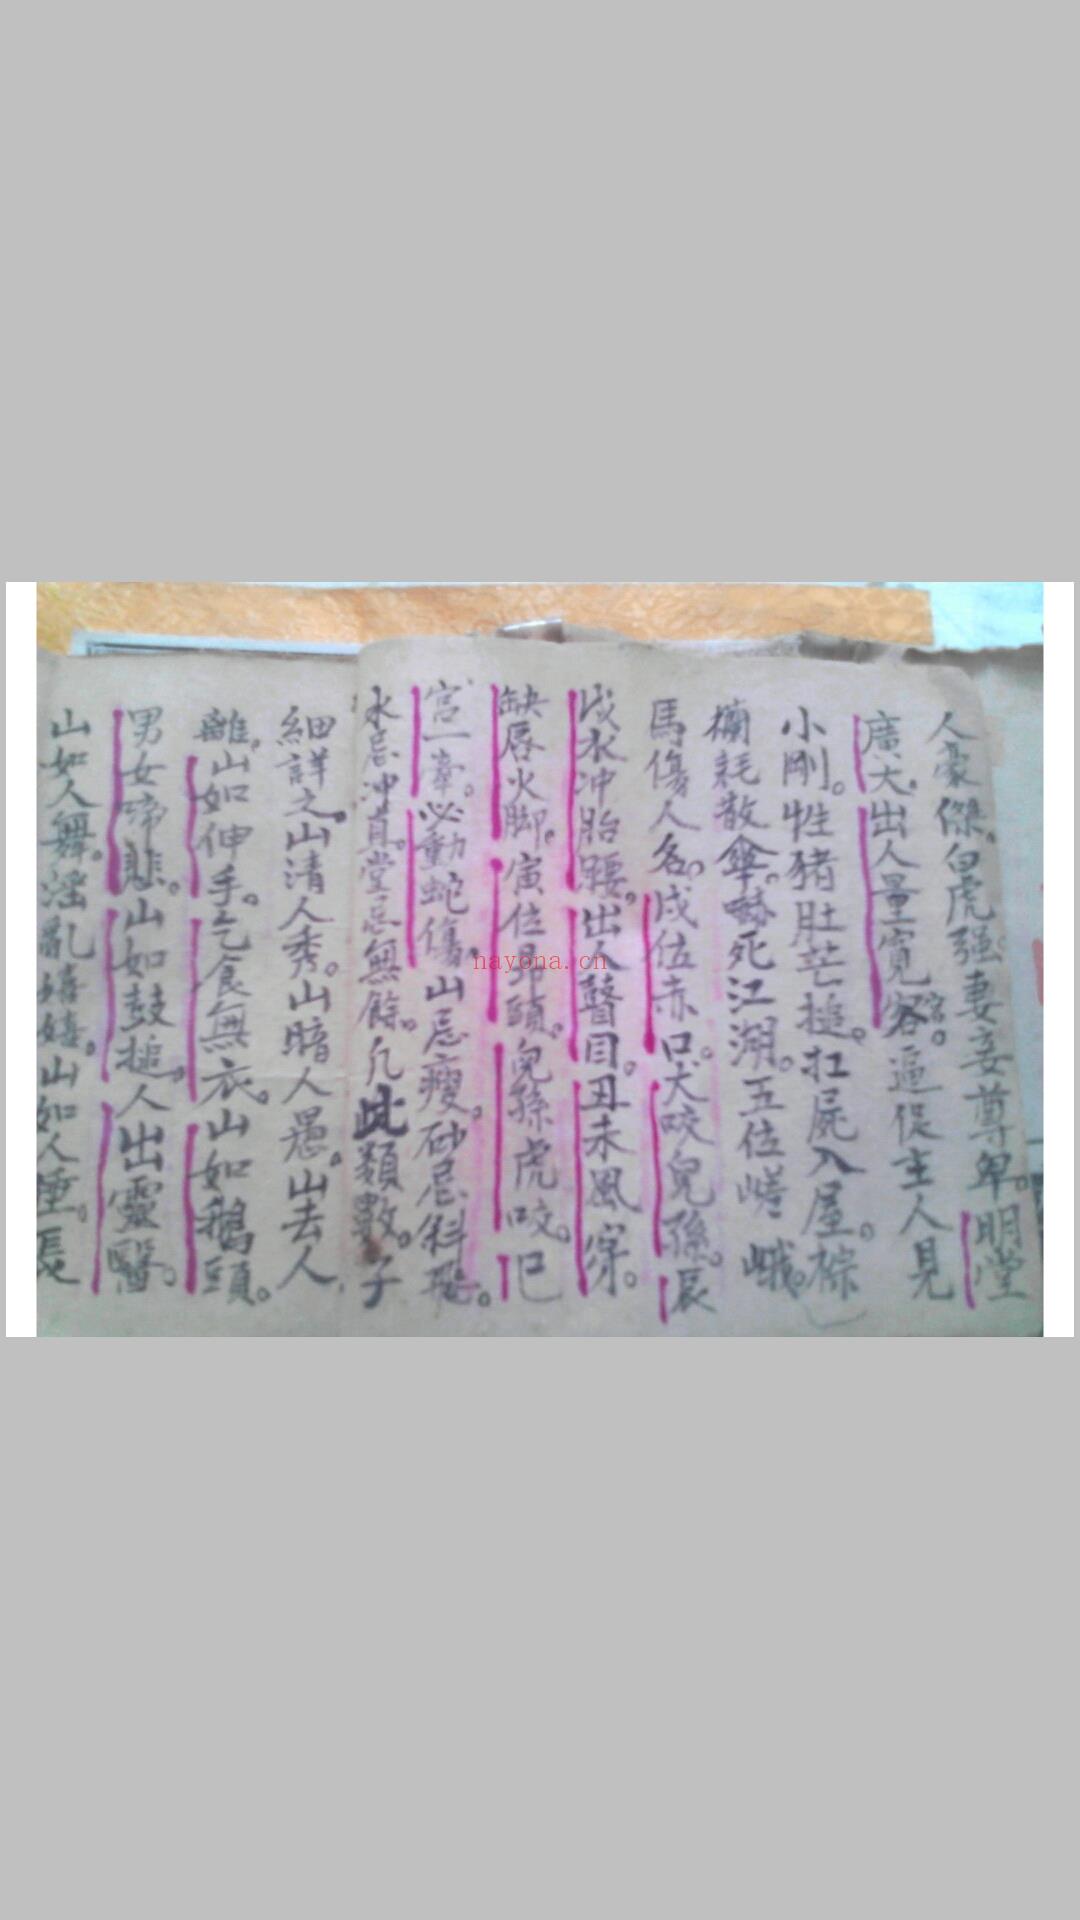 人豪傑。白虎强。妻妾尊卑。明堂
廣大。出人量寬容。逼促主人見
小剛。牲猪肚芒槌。扛屍入屋。
耗散傘。死江湖。五位嵯峨。
馬傷人名。戌位赤口。犬咬兒孫。辰
戌水冲胎腰。出人瞽目。丑未風穿。
缺唇火脚。寅位昂頭。兒孫虎咬。巳
宮一牽。必動蛇傷。山忌瘦。砂忌斜飛。
水忌冲直。堂忌無餘。凡此類數。子
細詳之。山清人秀。山暗人愚。山去人
離。山如伸手。乞食無衣。山如鵝頭。
男女啼悲。山如鼓槌。人出靈醫。
山如人舞。淫亂嬉嬉。山如人睡。長
nayona.cn